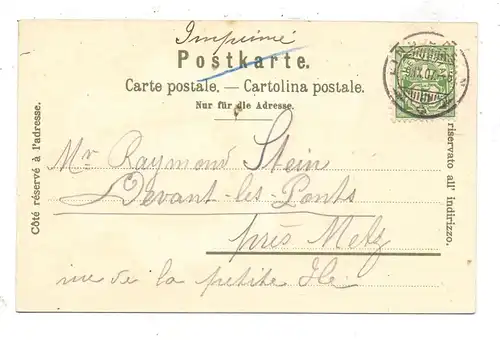 Imprimé
Postkarte.
Carte postale. — Cartolina postale.
Nur für die Adresse.
Côté réservé à l'adresse.
riservato all' indirizzo.
Mr Raymond Stein
Devant-les-Ponts
près Metz
rue de la petite Ile